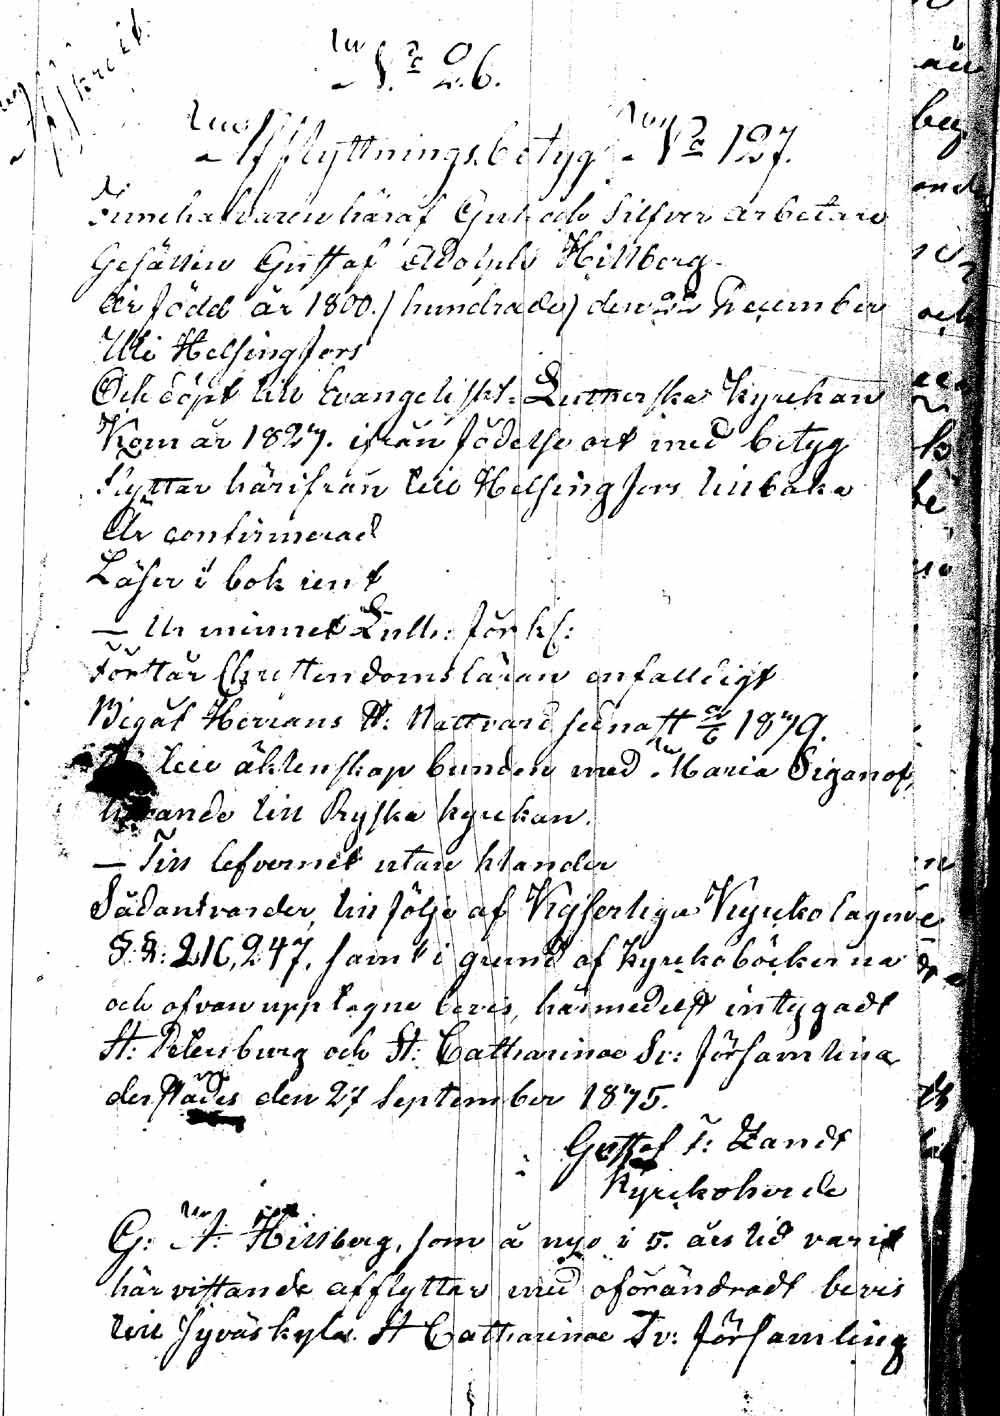 Afskrift.
No 26.
Afflyttningsbetyg No 127.
Innehafvaren häraf Guld och Silfver arbetare
Gesällen Gustaf Adolph Hillberg
Är född år 1800. /hundrade/ den 22 December
Uti Helsingfors
Och döpt till Evangeliskt-Lutherska Kyrckan
Kom år 1827. ifrån födelse ort med betyg
Flyttar härifrån till Helsingfors tillbaka
Är confirmerad
Läser i bok rent
— Ur minnet Luth: förkl:
Förstår Christendomsläran enfalldigt
Begåt Herrans H: Nattvard sednast 1879.
till äktenskap bunden med Maria Siganof,
hörande till Ryska kyrckan.
— Till lefvernet utan klander
Sådant varder, till följe af Kejserliga Kyrckolagens
§.§: 216, 247, samt i grund af Kyrckoböckerna
och ofvan upptagne bevis, härmedelst intygadt
St: Petersburg och St: Catharinae Sv: församling
derstädes den 27 September 1875.
Gustaf F: Zandt
Kyrckoherde
G: A: Hillberg, som å nyo i 5. års tid varit
här vistande afflyttar med oförändradt bevis
till Jyväskylä. St Catharinae Sv: församling